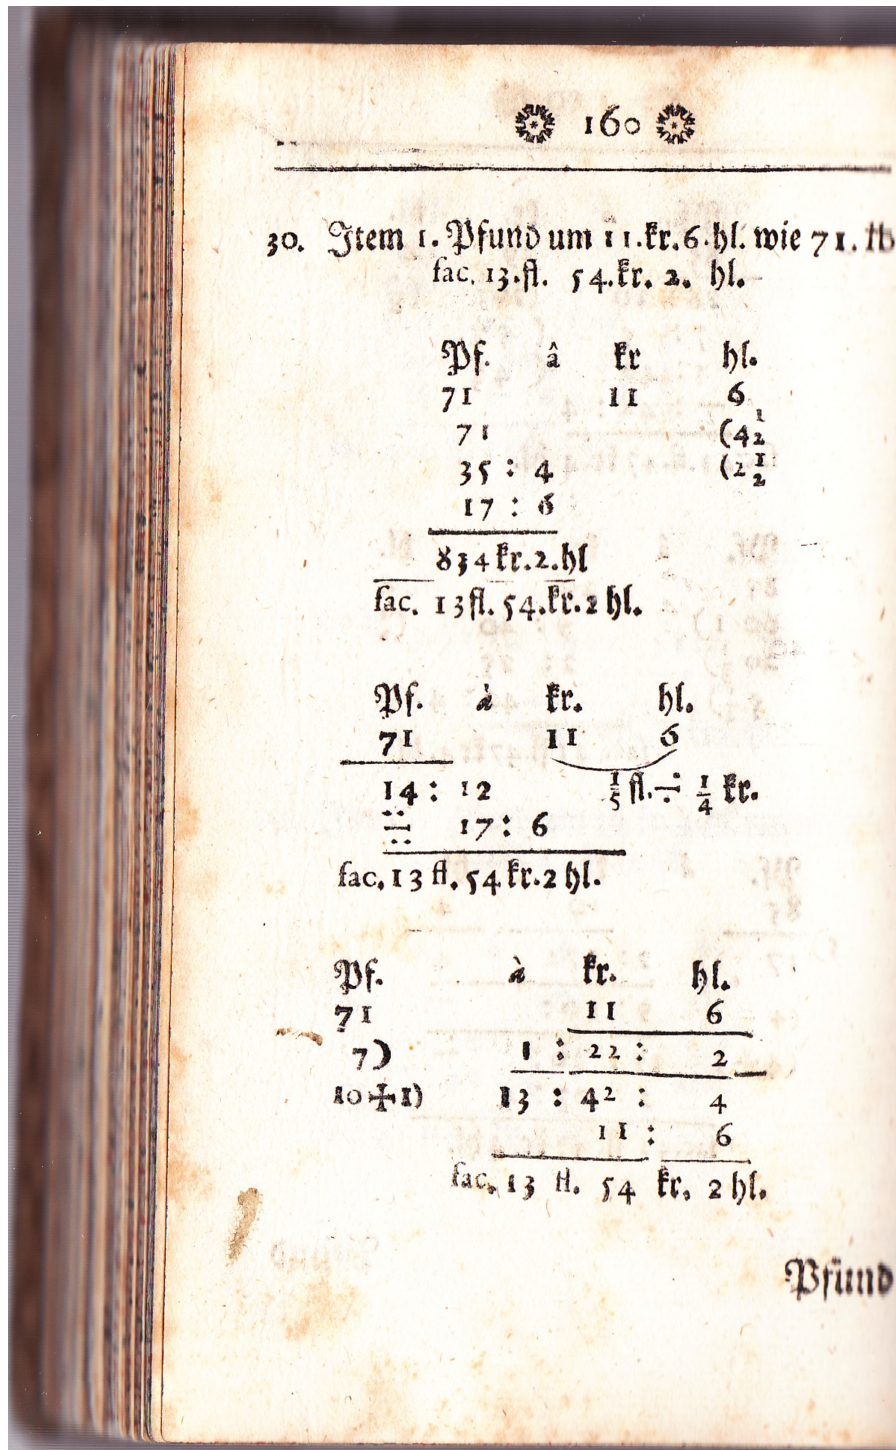 160
30. Item 1. Pfund um 11.kr.6.hl. wie 71. ℔
fac. 13.fl. 54.kr. 2. hl.
Pf. â kr hl.
71 11 6
71 (4 1/2
35 : 4 (2 1/2
17 : 6
834 kr.2.hl
fac. 13 fl. 54.kr.2 hl.
Pf. à kr. hl.
71 11 6
14 : 12 1/5 fl. ÷ 1/4 kr.
÷ 17 : 6
fac. 13 fl. 54 kr.2 hl.
Pf. à kr. hl.
71 11 6
7) 1 : 22 : 2
10+1) 13 : 42 : 4
11 : 6
fac. 13 fl. 54 kr. 2 hl.
Pfund